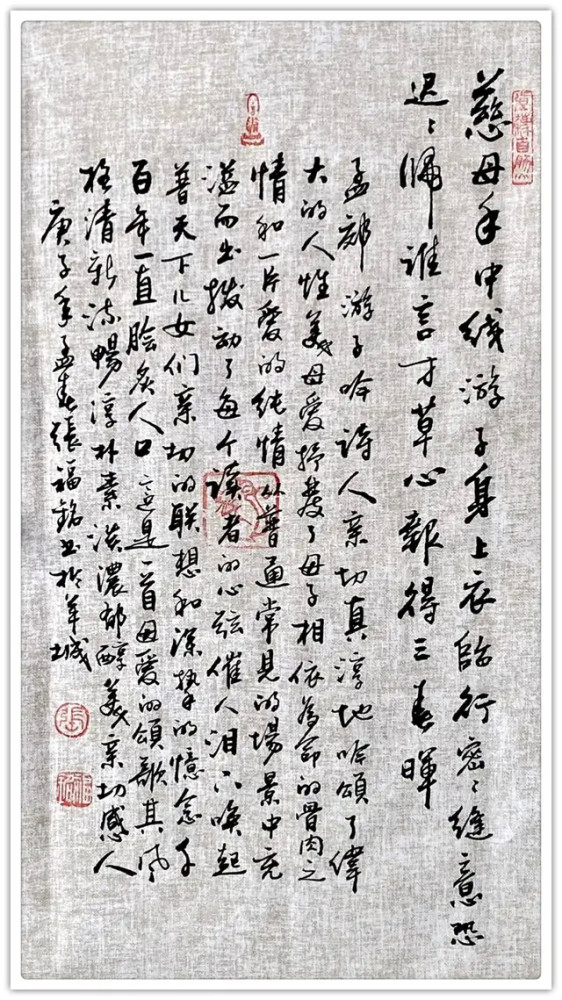 慈母手中线游子身上衣临行密〻缝意恐
迟〻歸谁言寸草心報得三春暉
孟郊游子吟诗人亲切真淳地吟頌了偉
大的人性美母爱抒發了母子相依為命的骨肉之
情和一片爱的纯情从普通常見的場景中充
溢而出拨动了每个读者的心弦催人泪下唤起
普天下儿女们亲切的联想和深挚的憶念千
百年一直脍炙人口這是一首母爱的頌歌其风
格清新流暢淳朴素淡濃郁醇美亲切感人
庚子年孟春張福銘书於羊城